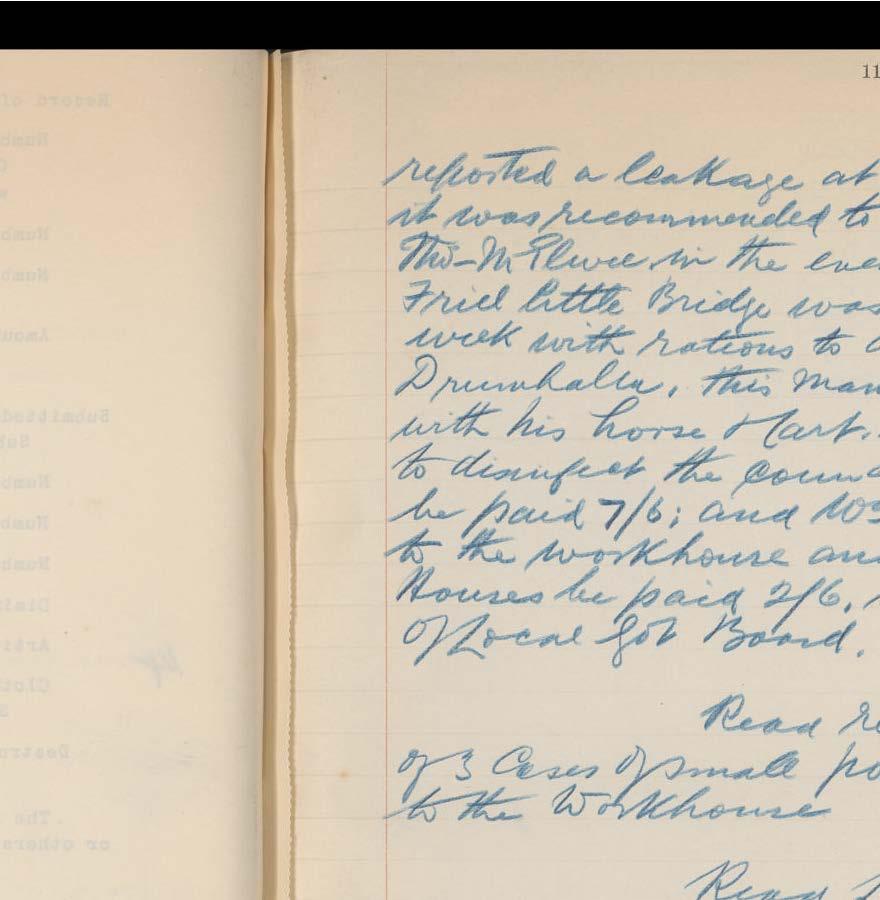 11
reported a leakage at
it was recommended to
Tho- McElwee in the eve
Friel little Bridge was
week with rations to
Drumhalla, this man
with his horse & Cart.
to disinfect the
be paid 7/6; and
to the workhouse an
Houses be paid 2/6,
Of Local Gov Board.
Read re
of 3 Cases of small po
to the Workhouse
Read